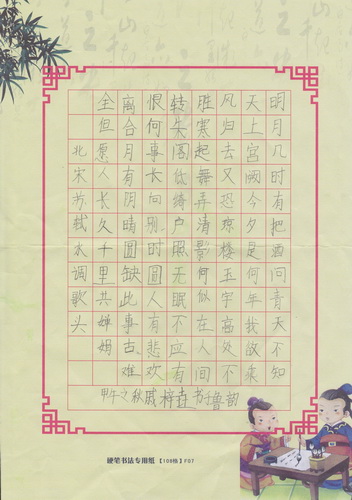 明月几时有把酒问青天不知
天上宫阙今夕是何年我欲乘
风归去又恐琼楼玉宇高处不
胜寒起舞弄清影何似在人间
转朱阁低绮户照无眠不应有
恨何事长向别时圆人有悲欢
离合月有阴晴圆缺此事古难
全但愿人长久千里共婵娟
北宋苏轼水调歌头
甲午之秋戚梓垚书于鲁韵
硬笔书法专用纸【108格】F07